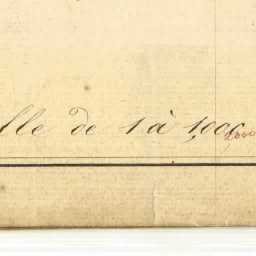 lle de 1 à 1,000
2000